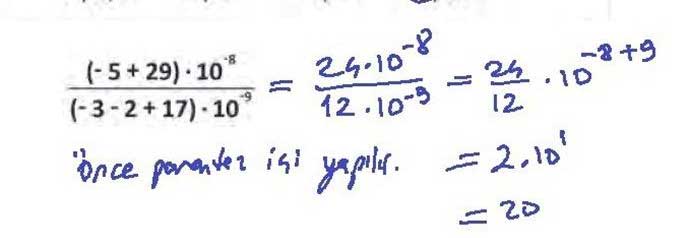 (- 5 + 29) · 10⁻⁸ / (- 3 - 2 + 17) · 10⁻⁹ = 24·10⁻⁸ / 12·10⁻⁹ = 24/12 · 10⁻⁸⁺⁹
Önce parantez içi yapılır. = 2.10¹
= 20